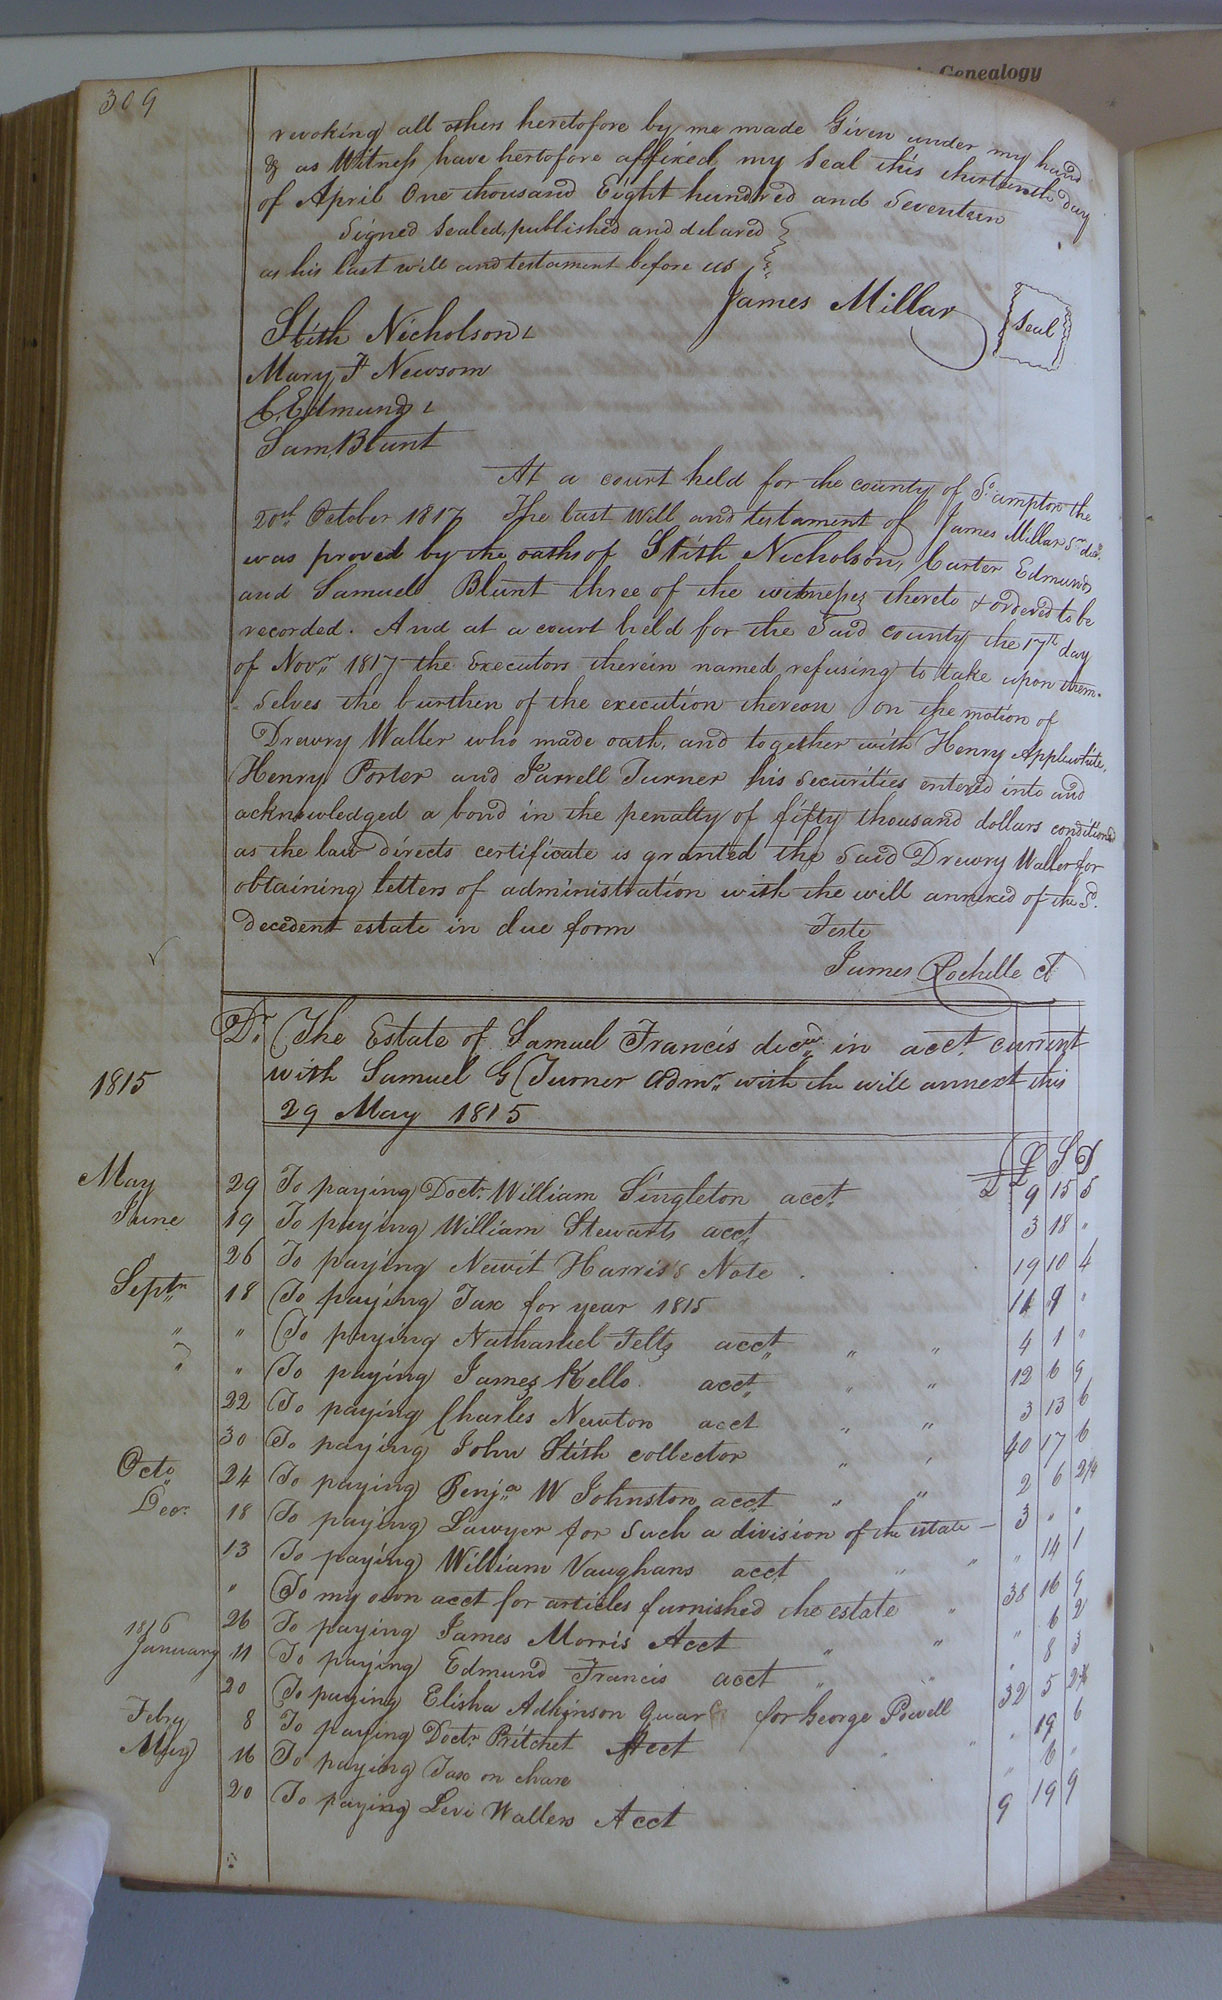 Genealogy
309
revoking all others heretofore by me made Given under my hand
& as Witness have hertofore affixed my Seal this thirteenth day
of April One thousand Eight hundred and Seventeen
Signed Sealed, published and delared
as his last will and testament before us
James Millar
Seal
Stith Nicholson
Mary F Newsom
C. Edmunds
Sam. Blunt
At a court held for the county of So ampton the
20th October 1817 The last Will and testament of James Millar Sr decd
was proved by the oaths of Stith Nicholson, Carter Edmunds
and Samuel Blunt three of the witnesses thereto & ordered to be
recorded. And at a court held for the Said county the 17th day
of Novr 1817 the Executors therein named refusing to take upon them-
selves the burthen of the execution thereon on the motion of
Drewry Waller who made oath, and together with Henry Applewhite,
Henry Porter and Jarrell Turner his Securities entered into and
acknowledged a bond in the penalty of fifty thousand dollars conditioned
as the law directs certificate is granted the Said Drewry Waller for
obtaining letters of administration with the will annexed of the Sd.
decedent estate in due form Teste
James Rochelle Ct
Dr. The Estate of Samuel Francis decd in acct. current
1815 with Samuel G Turner Admr with the will annext this
29 May 1815
£ S D
May 29 To paying Doctr. William Singleton acct. £ 9 15 5
June 19 To paying William Stewarts acct 3 18 "
26 To paying Newit Harris's Note 19 10 4
Septr 18 To paying Tax for year 1815 11 9 "
" " To paying Nathaniel Felts acct " " 4 1 "
" " To paying James Kello acct " " 12 6 9
22 To paying Charles Newton acct " " 3 13 6
30 To paying John Stith collector " " 40 17 6
Octo 24 To paying Benja W Johnston acct " " 2 6 2 1/4
Decr. 18 To paying Lawyer for Such a division of the estate — 3 " "
13 To paying William Vaughans acct " " " 14 1
" To my own acct for articles furnished the estate " 38 16 9
26 To paying James Morris Acct " " " 6 2
1816
January 11 To paying Edmund Francis acct " " " 8 3
20 To paying Elisha Adkinson Guar for George Powell 32 5 2 3/4
Febry 8 To paying Doctr. Pritchet Acct " " " 19 6
May 16 To paying Tax on chare " 6 "
20 To paying Levi Wallers Acct 9 19 9